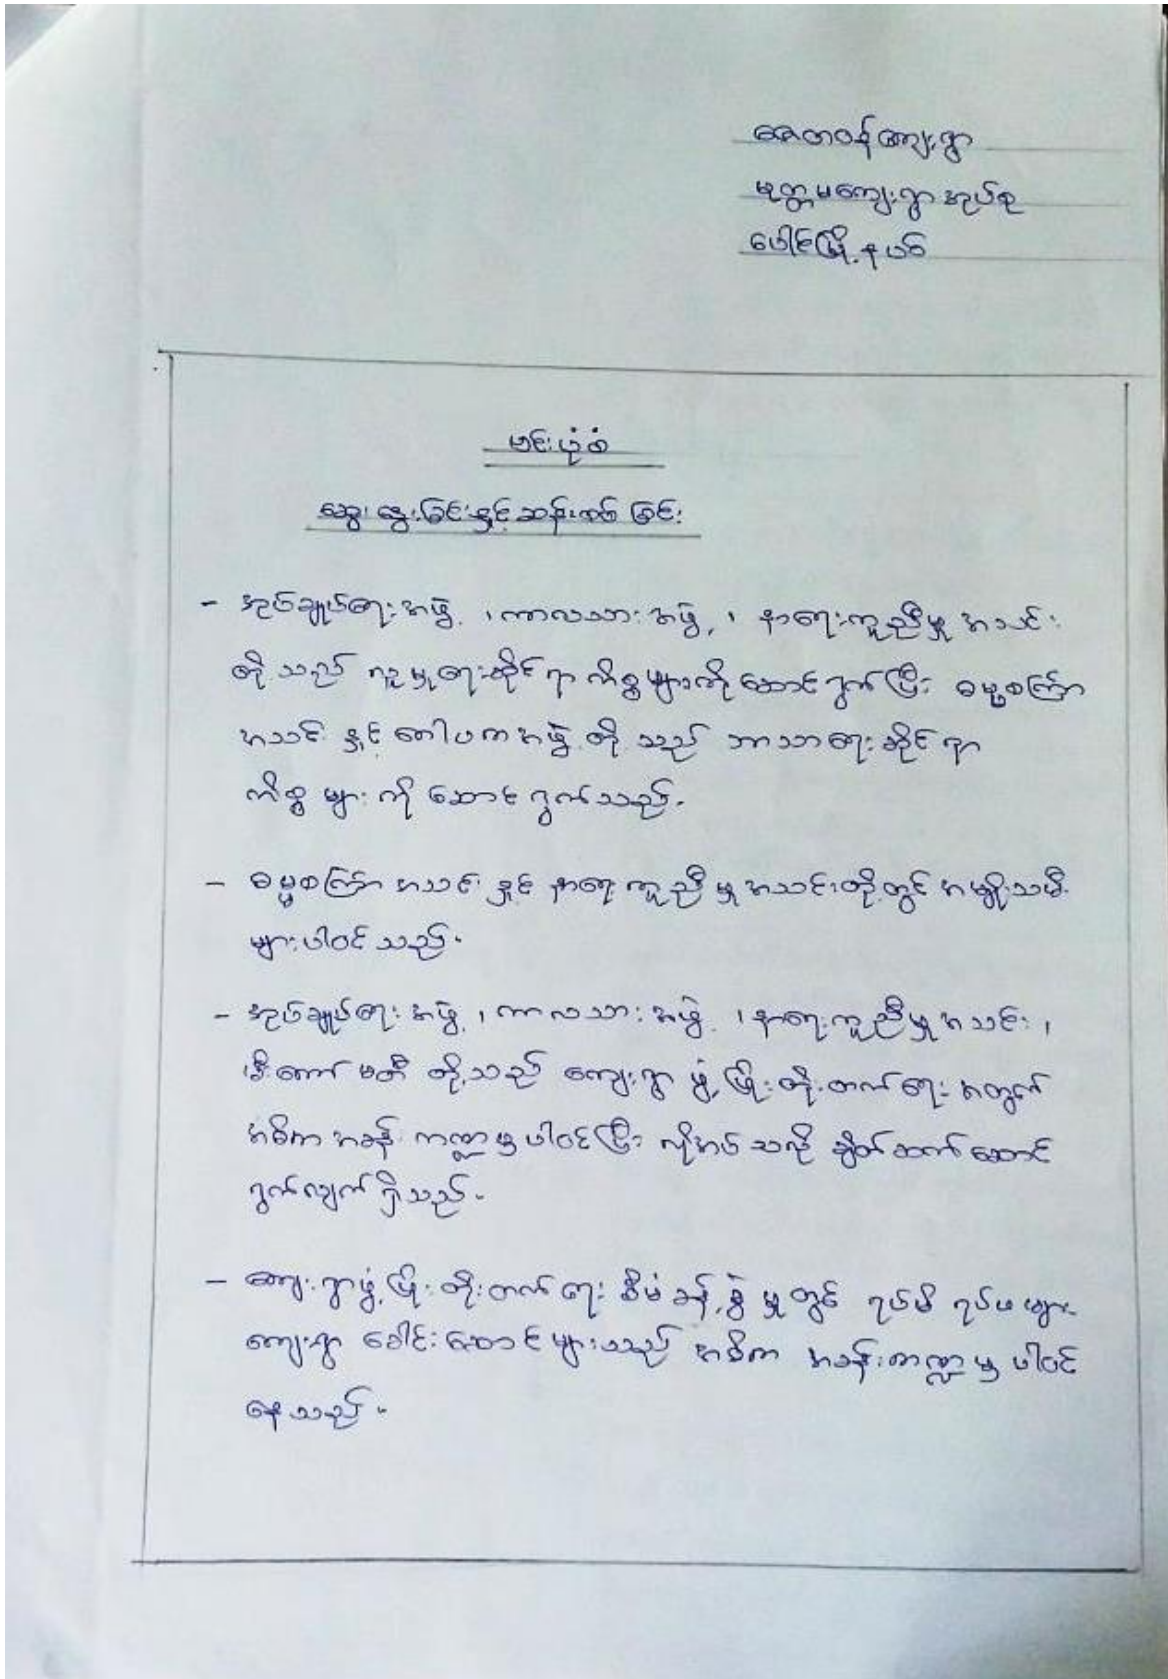 ဇေတဝန်ကျေးရွာ
မုတ္တမကျေးရွာအုပ်စု
ပေါင်မြို့နယ်
ဗင်းပုံစံ
ဆွေးနွေးခြင်းနှင့်ဆန်းစစ်ခြင်း
- အုပ်ချုပ်ရေးအဖွဲ့ ၊ ကာလသားအဖွဲ့ ၊ နာရေးကူညီမှုအသင်း
တို့သည် လူမှုရေးဆိုင်ရာ ကိစ္စများကိုဆောင်ရွက်ပြီး ဓမ္မစကြာ
အသင်း နှင့် ဂေါပကအဖွဲ့ တို့သည် ဘာသာရေးဆိုင်ရာ
ကိစ္စများ ကို ဆောင်ရွက်သည်။
- ဓမ္မစကြာအသင်း နှင့် နာရေးကူညီမှုအသင်းတို့တွင် အမျိုးသမီး
များပါဝင်သည်။
- အုပ်ချုပ်ရေးအဖွဲ့ ၊ ကာလသားအဖွဲ့ ၊ နာရေးကူညီမှုအသင်း ၊
မီးကော်မတီ တို့သည် ကျေးရွာ ဖွံ့ဖြိုးတိုးတက်ရေး အတွက်
အဓိကအခန်းကဏ္ဍမှပါဝင်ပြီး လိုအပ်သလို ချိတ်ဆက်ဆောင်
ရွက်လျက်ရှိသည်။
- ကျေးရွာဖွံ့ဖြိုးတိုးတက်ရေး စီမံခန့်ခွဲမှုတွင် ရပ်မိရပ်ဖများ
ကျေးရွာ ခေါင်းဆောင်များသည် အဓိက အခန်းကဏ္ဍမှ ပါဝင်
နေသည်။